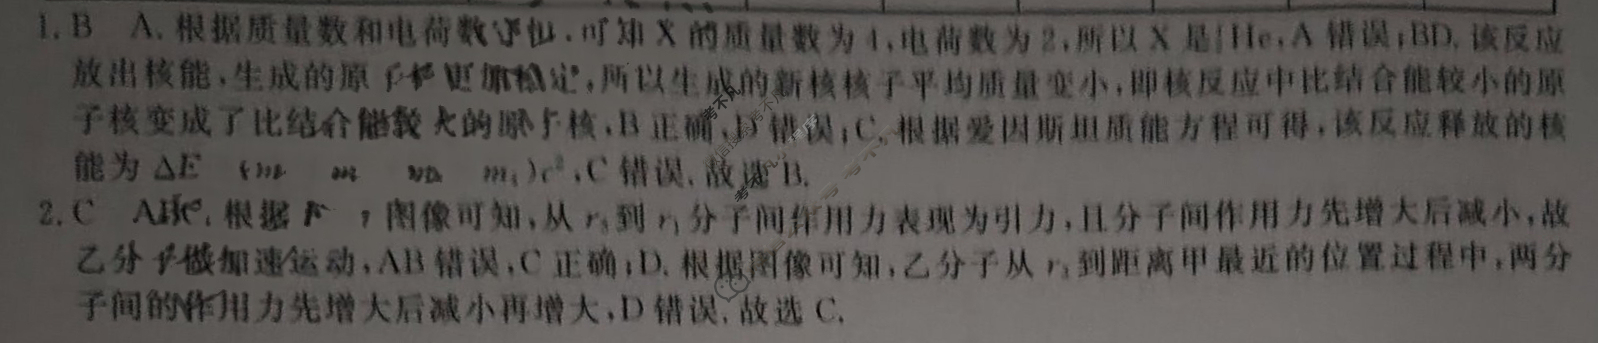 1. B　A. 根据质量数和电荷数守恒，可知 X 的质量数为 4，电荷数为 2，所以 X 是⁴He，A 错误；BD. 该反应
放出核能，生成的原子核更加稳定，所以生成的新核核子平均质量变小，即核反应中比结合能较小的原
子核变成了比结合能较大的原子核，B 正确，D 错误；C. 根据爱因斯坦质能方程可得，该反应释放的核
能为 ΔE c²，C 错误. 故选 B.
2. C　ABC. 根据 F 图像可知，从 r₃ 到 r₁ 分子间作用力表现为引力，且分子间作用力先增大后减小，故
乙分子做加速运动，AB 错误，C 正确；D. 根据图像可知，乙分子从 r₃ 到距离甲最近的位置过程中，两分
子间的作用力先增大后减小再增大，D 错误. 故选 C.